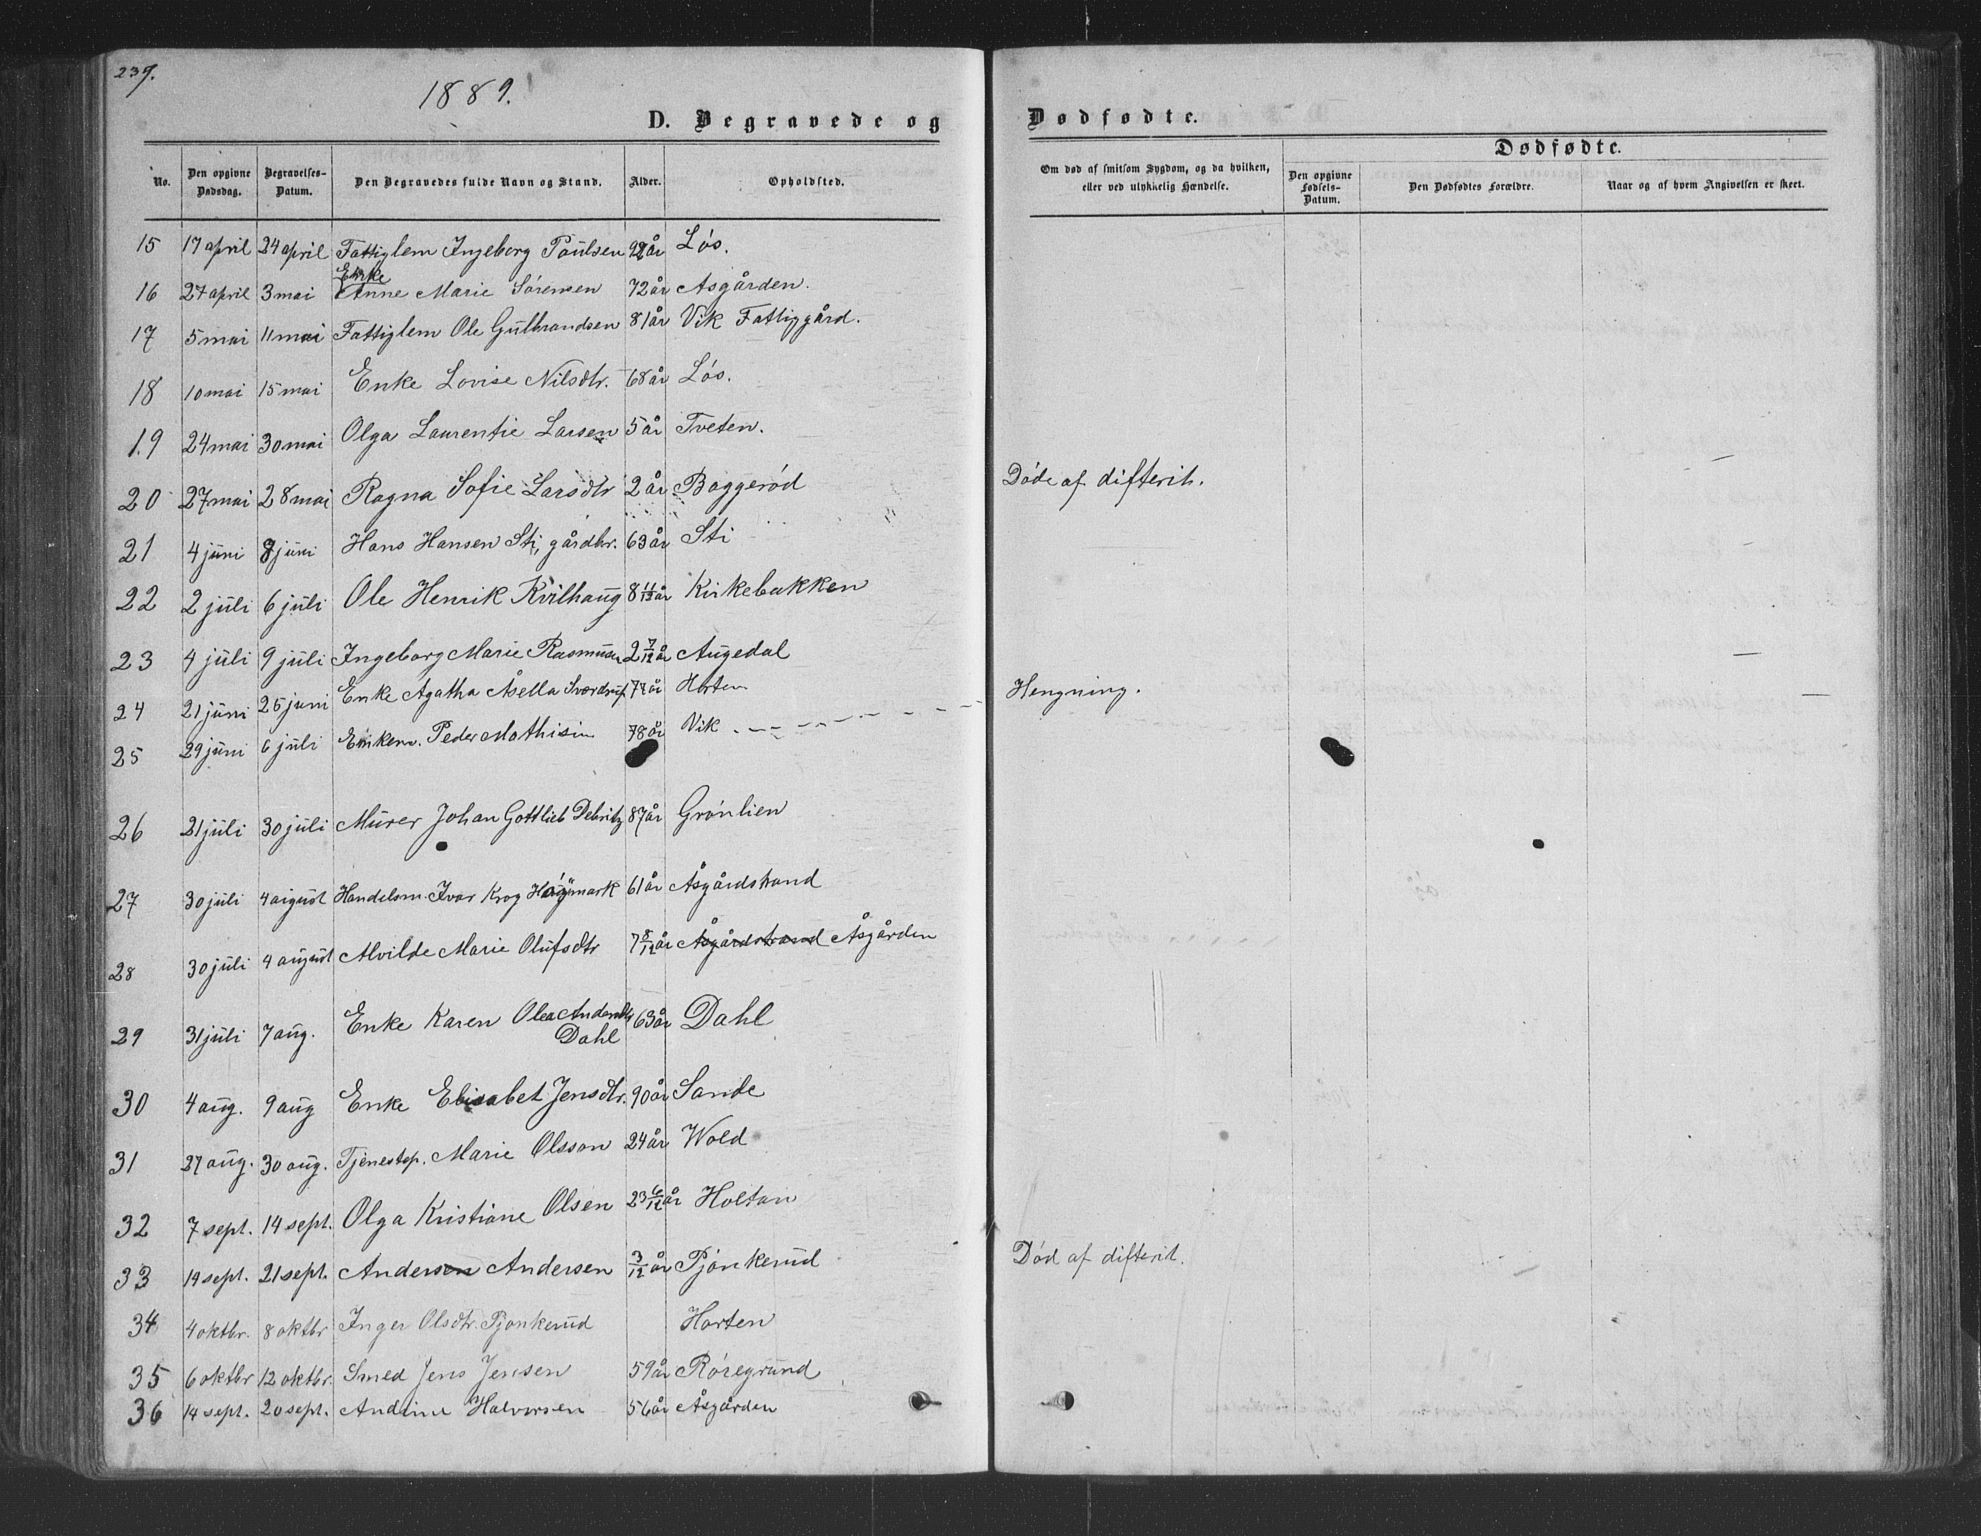 239.
1889.
D. Begravede og
Dødfødte.
No. Den opgivne Dødsdag. Begravelses-Datum. Den Begravedes fulde Navn og Stand. Alder. Opholdsted.
Om død af smitsom Sygdom, og da hvilken, eller ved ulykkelig Hændelse.
Dødfødte.
Den opgivne Fødsels-Datum. Den Dødfødtes Forældre. Naar og af hvem Angivelsen er skeet.
15 17 april 24 april Fattiglem Ingeborg Paulsen år Løs.
16 27 april 3 mai Enke Anne Marie Sørensen 72 år Asgården.
17 5 mai 11 mai Fattiglem Ole Gulbrandsen 81 år Vik Fattiggård.
18 10 mai 15 mai Enke Lovise Nilsdtr. 68 år Løs.
19 24 mai 30 mai Olga Laurentie Larsen 5 år Tveten.
20 27 mai 28 mai Ragna Sofie Larsdtr 2 år Baggerød Døde af difterit.
21 4 juni 8 juni Hans Hansen Sti, gårdbr. 63 år Sti
22 2 juli 6 juli Ole Henrik Kvilhaug 8 11/12 år Kirkebakken
23 4 juli 9 juli Ingeborg Marie Rasmusen 2 7/12 år Augedal
24 21 juni 25 juni Enke Agatha Åsella Sverdrup 77 år Horten Hengning.
25 29 juni 6 juli Enkem. Peder Mathisen 78 år Vik
26 21 juli 30 juli Murer Johan Gottlieb Debritz 87 år Grønlien
27 30 juli 4 august Handelsm. Ivar Krog Høgmark 61 år Åsgårdstrand
28 30 juli 4 august Alvilde Marie Olufsdtr 7 8/12 år Åsgårdstrand Åsgården
29 31 juli 7 aug. Enke Karen Olea Andersdtr 63 år Dahl
Dahl
30 4 aug. 9 aug Enke Elisabet Jensdtr. 90 år Sande
31 27 aug. 30 aug. Tjenestep. Marie Olsson 24 år Wold
32 7 sept. 14 sept. Olga Kristiane Olsen 23 6/12 år Holtan
33 19 sept. 21 sept. Andersen Andersen 3/12 år Pjønkerud Død af difterit.
34 4 oktbr. 8 oktbr Inger Olsdtr. Pjønkerud Horten
35 6 oktbr 12 oktbr. Smed Jens Jensen 59 år Røregrund
36 14 sept. 20 sept. Andrine Halvorsen 56 år Åsgården